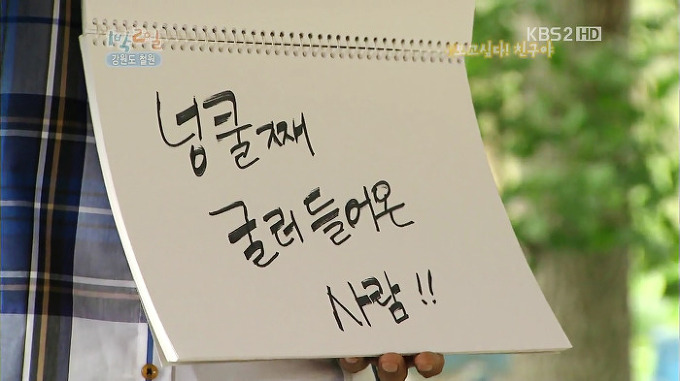 1박2일
강원도 철원
KBS2 HD
보고싶다! 친구야
넝쿨째
굴러들어온
사람!!